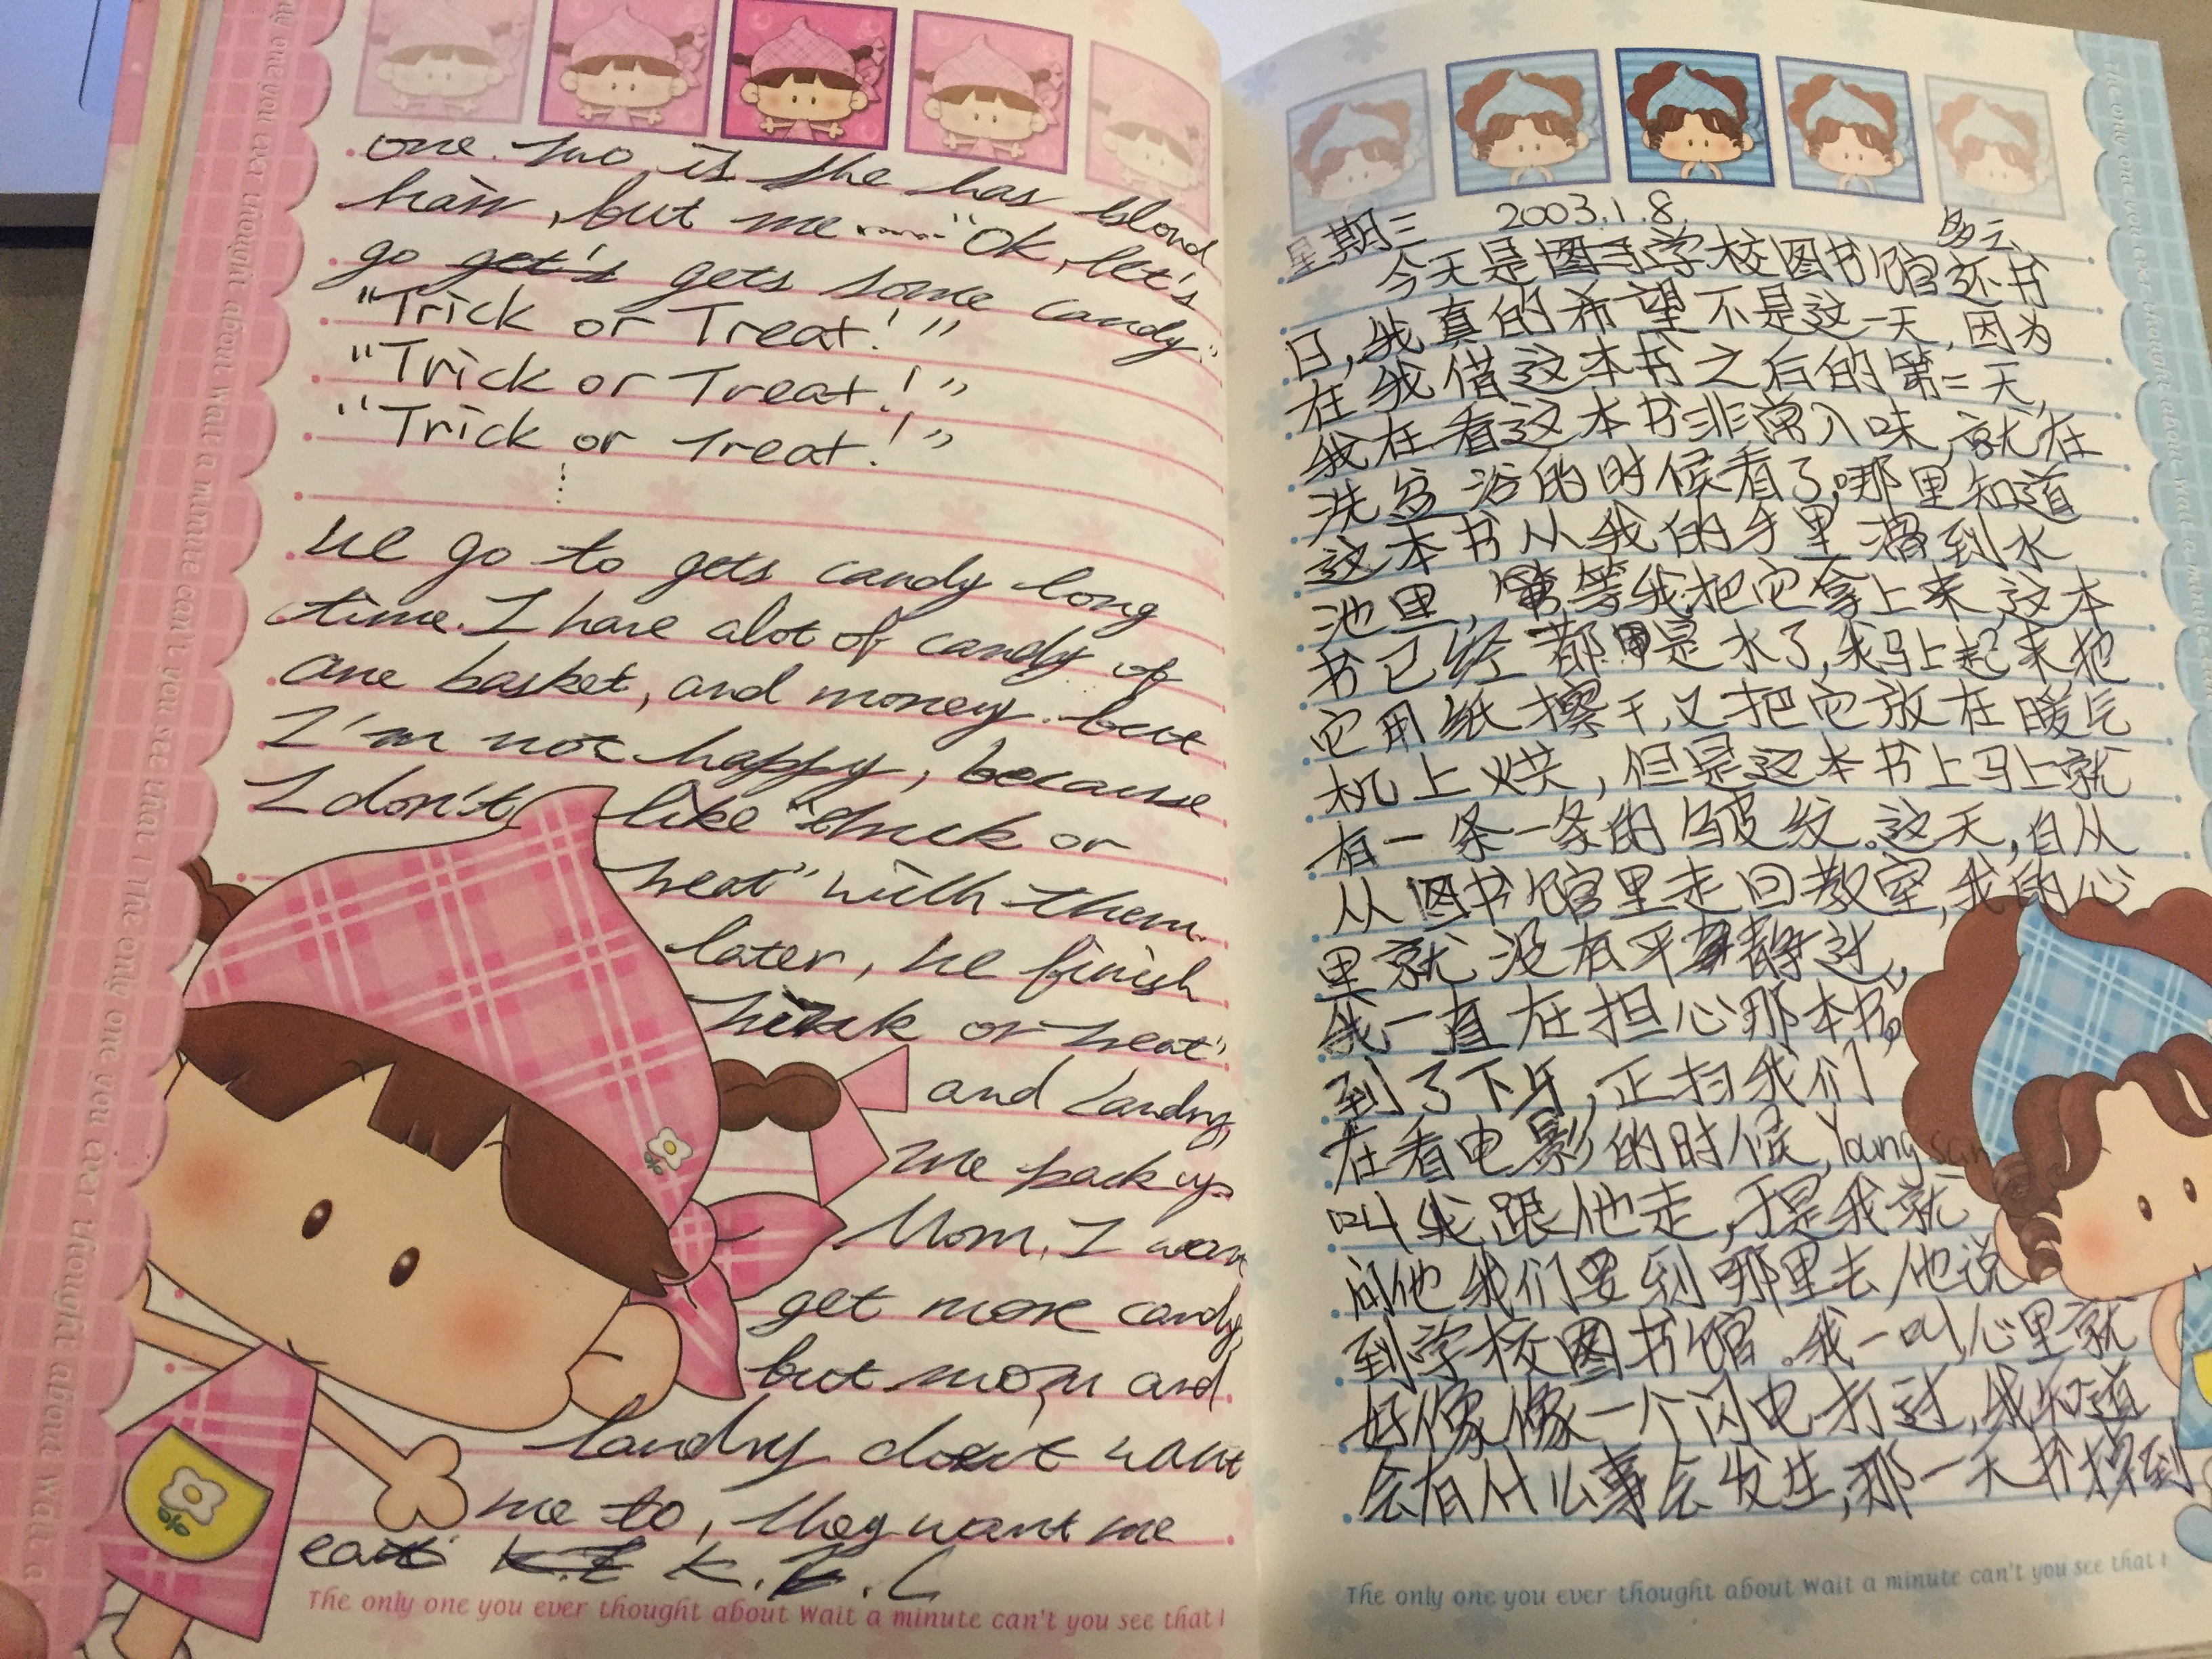 one. two is she has blond
hair, but me ...... "OK, let's
go get's gets some candy"
"Trick or Treat!"
"Trick or Treat!"
"Trick or Treat!"
we go to gets candy long
time. I have alot of candy of
one basket, and money. but
I'm not happy, because
I don't like "trick or
treat" with them.
later, we finish
trick or treat,
and Landry,
me pack up
Mom, I wan
get more candy,
but mom and
landry don't want
me to, they want me
eat K.F.C
The only one you ever thought about wait a minute can't you see that I
星期三 2003.1.8. 多云
今天是图于学校图书馆还书
日,我真的希望不是这一天,因为
在我借这本书之后的第二天,
我在看这本书非常入味,就在
洗盆浴的时候看了,哪里知道
这本书从我的手里滑到水
池里,等我把它拿上来,这本
书已经都是水了,我马上起来把
它用纸擦干,又把它放在暖气
机上烘,但是这本书上马上就
有一条一条的皱纹。这天,自从
从图书馆里走回教室,我的心
里就没有平静过,
我一直在担心那本书。
到了下午,正扫我们
在看电影的时候,Young san
叫我跟他走,于是我就
问他我们要到哪里去,他说
到学校图书馆。我一叫心里就
好像像一个闪电打过,我知道
会有什么事会发生,那一天书掉到
The only one you ever thought about wait a minute can't you see that I